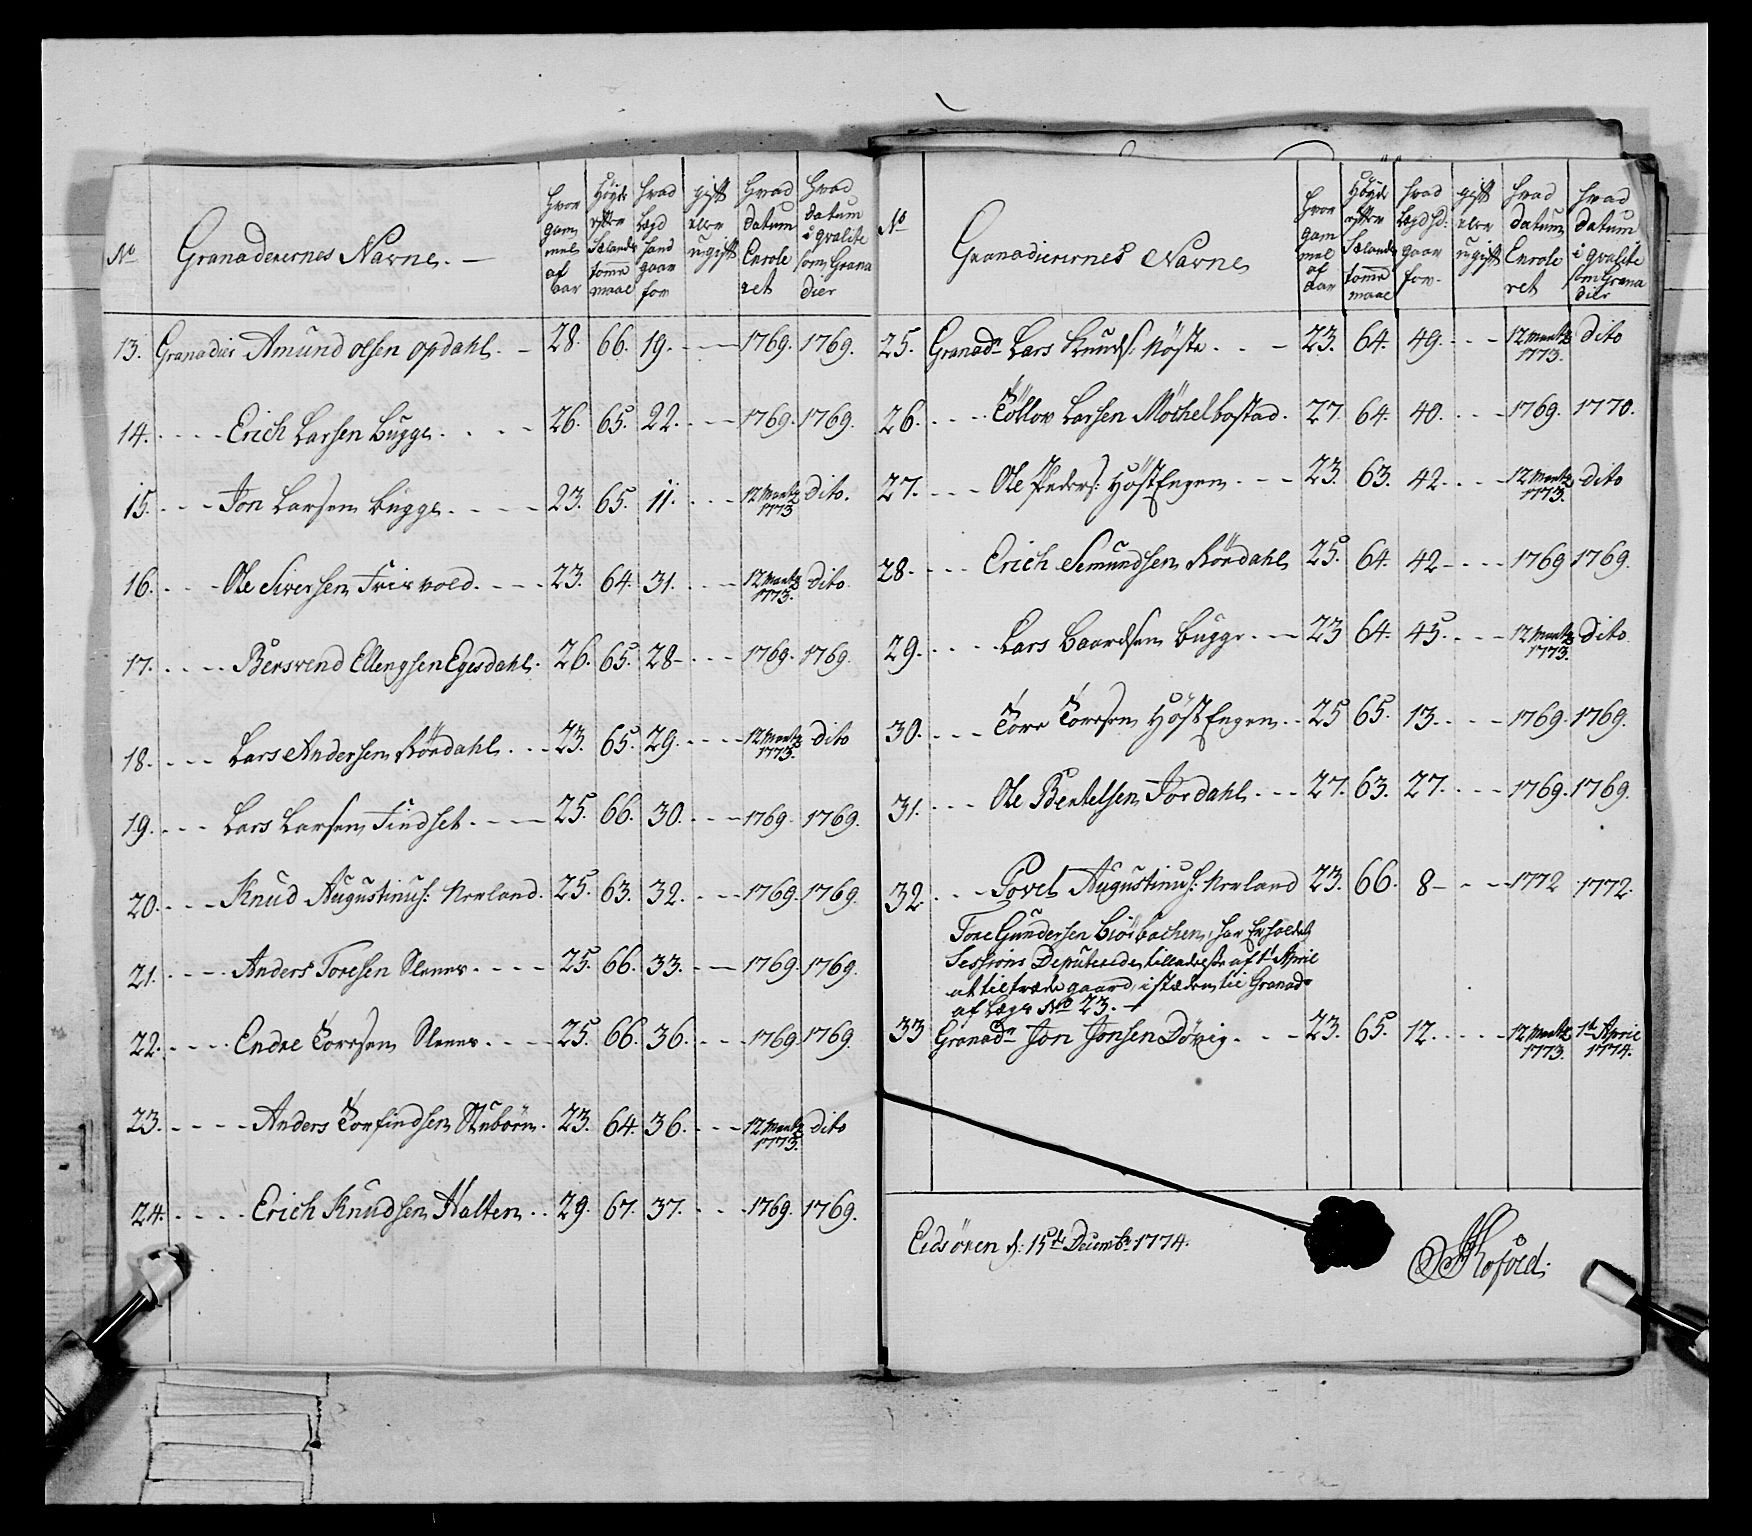 No
Granaderernes Navne. —
hvor gam mel af aar
Høyde efter Sælands tomme maal
hvad Legd hand gaar for
gift eller ugift
hvad datum Enrole ret
hvad datum i qvalite som Grana dier
13. Granadier Amund Olsen Opdahl. – 28. 66. 19. – – – 1769. 1769.
14. – – – – Erich Larsen Bugge. – – – 26. 65. 22. – – – 1769. 1769.
15. – – – Jon Larsen Bugge. – – – – 23. 65. 11. – – – 12 Martz 1773 dito.
16. – – – Ole Siversen Friisvold. – – – 23. 64. 31. – – – 12 Martz 1773. dito
17. – – – – Bersvend Ellengsen Egisdahl. 26. 65. 28 – – – – 1769. 1769.
18. – – – Lars Andersen Rördahl. – – – 23. 65. 29. – – – – 12 Martz 1773. dito
19. – – – Lars Larsen Findset. – – – – 25. 66. 30. – – – 1769. 1769.
20. – – – Knud Augustinus: Norland. 25. 63. 32. – – – 1769. 1769.
21. – – – – Anders Toresen Slenes. – – – – 25. 66. 33. – – – 1769. 1769.
22. – – – – Endre Toresen Slenes. – – – – 25. 66. 36. – – – 1769 1769.
23. – – – – Anders Torfindsen Stubörn. 23. 64. 36. – – – 12 Martz 1773. dito
24. – – – – Erich Knudsen Halten. – – 29. 67. 37. – – – 1769. 1769.
No
Granadierernes Navne
hvor gam mel af aar
Høyde efter Sælands tomme maal
hvad Legd hd: gaar for.
gift eller ugift
hvad datum Enrole ret
hvad datum i qvalite som Grana dier
25. Granadr Lars Knuds: Nöste. – – – 23. 64. 49. – – – 12 Martz 1773. dito
26. – – – Töllov Larsen Möchelbostad. 27. 64. 40. – – – 1769. 1770.
27. – – – Ole Peders: HöstEngen. – – – 23. 63. 42. – – – 12 Martz 1773. dito
28. – – – – Erich Semundsen Rördahl 25. 64. 42 – – – – 1769 1769.
29. – – – – Lars Baardsen Bugge. – – 23 64. 45. – – – – 12 Martz 1773. dito
30. – – – Tore Toresen HöstEngen. – 25 65. 13. – – – – 1769. 1769.
31. – – – Ole Bentelsen Jordahl. – – – 27. 63. 27. – – – – 1769. 1769.
32. – – – Povel Augustinus: Norland 23. 66. 8 – – – 1772 1772.
Tore Gundersen har Erholdet
Sessions Deputerede tilladelse af 1t April
at tiltræde gaard, istæden til Granadr
af Læge No 23. –
33 Granadr Jon Jonsen Dövig. – – – 23. 65. 12. – – – – 12 Martz 1773. 1t April 1774.
Eidsören d: 15de Decembr 1774.
Kofoed.